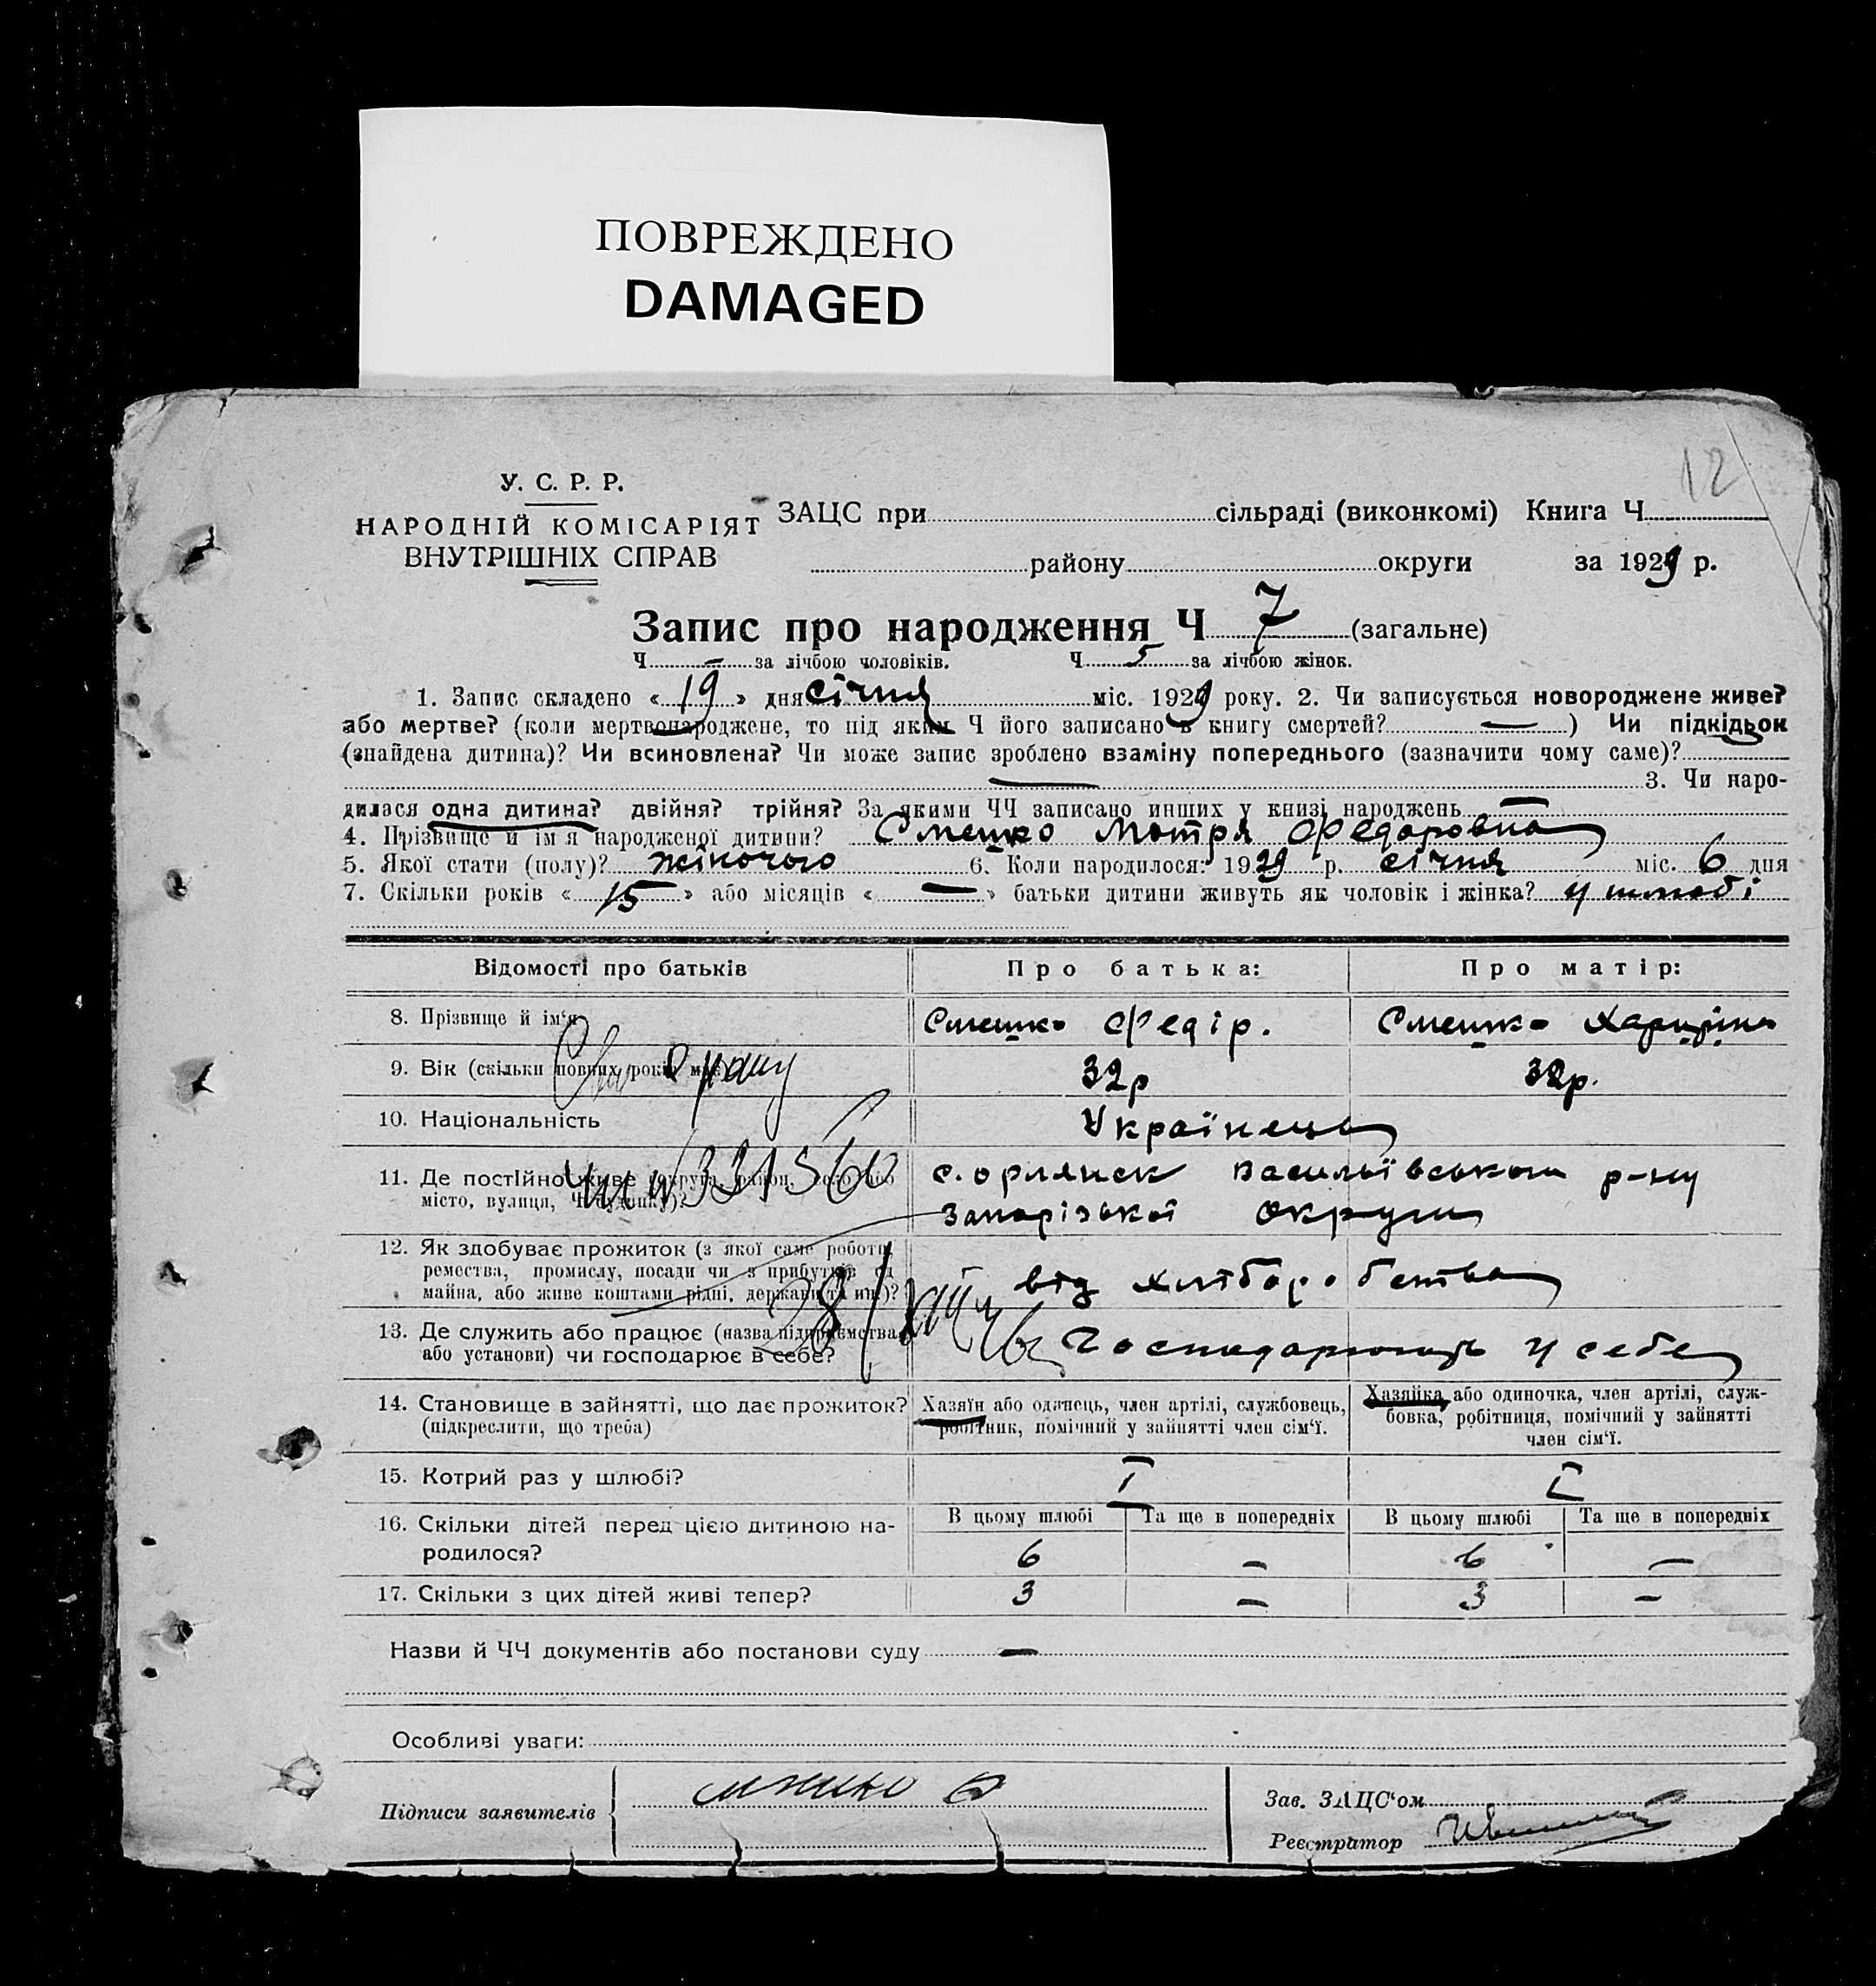 ПОВРЕЖДЕНО
DAMAGED
12
У. С. Р. Р.
НАРОДНІЙ КОМІСАРІЯТ
ВНУТРІШНІХ СПРАВ
ЗАЦС при сільраді (виконкомі) Книга Ч
району округи за 1929 р.
Запис про народження Ч 7 (загальне)
Ч – за лічбою чоловіків. Ч 5 за лічбою жінок.
1. Запис складено « 19 » дня січня міс. 1929 року. 2. Чи записується новороджене живе?
або мертве? (коли мертвонароджене, то під яким Ч його записано в книгу смертей? — ) Чи підкідьок
(знайдена дитина)? Чи всиновлена? Чи може запис зроблено взаміну попереднього (зазначити чому саме)?
— 3. Чи наро-
дилася одна дитина? двійня? трійня? За якими ЧЧ записано инших у книзі народжень —
4. Прізвище й ім'я народженої дитини? Смешко Мотря Федоровна
5. Якої стати (полу)? жіночого 6. Коли народилося: 1929 р. січня міс. 6 дня
7. Скільки років « 15 » або місяців « — » батьки дитини живуть як чоловік і жінка? у шлюбі
Відомості про батьків Про батька: Про матір:
8. Прізвище й ім'я Смешко Федір. Смешко
9. Вік (скільки повних років має) 32р 32р.
10. Національність Українець
11. Де постійно живе (округа, район, село або с. Орлянск Васильівського р-ну
місто, вулиця, Ч будинку)? Запорізької Округи
331560
12. Як здобуває прожиток (з якої саме роботи,
ремества, промислу, посади чи з прибутків од від хліборобства
майна, або живе коштами рідні, держави та ин.)?
28/XII
13. Де служить або працює (назва підприємства Господарюють у себе
або установи) чи господарює в себе?
14. Становище в зайнятті, що дає прожиток? Хазяїн або одинець, член артілі, службовець, Хазяйка або одиночка, член артілі, служ-
(підкреслити, що треба) робітник, помічний у зайнятті член сім'ї. бовка, робітниця, помічний у зайнятті
член сім'ї.
15. Котрий раз у шлюбі? I I
16. Скільки дітей перед цією дитиною на- В цьому шлюбі Та ще в попередніх В цьому шлюбі Та ще в попередніх
родилося? 6 – 6 –
17. Скільки з цих дітей живі тепер? 3 – 3 –
Назви й ЧЧ документів або постанови суду —
Особливі уваги:
Підписи заявителів
Зав. ЗАЦС'ом
Реєстратор